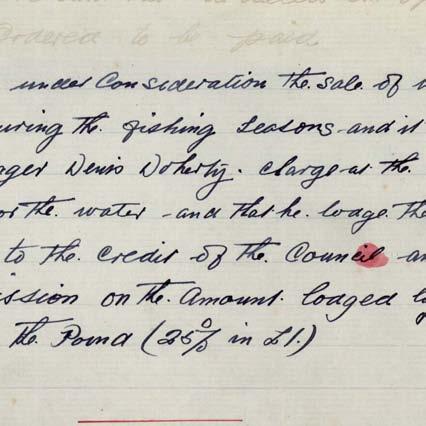 Ordered to be paid
under Consideration the. sale. of
uring the. fishing seasons - and it
ager Denis Doherty. charge - as the
or the. water - and that he. lodge. the
to the. credit of the. Council an
ission on the. Amount. lodged
the. Pound (25% in £1.)